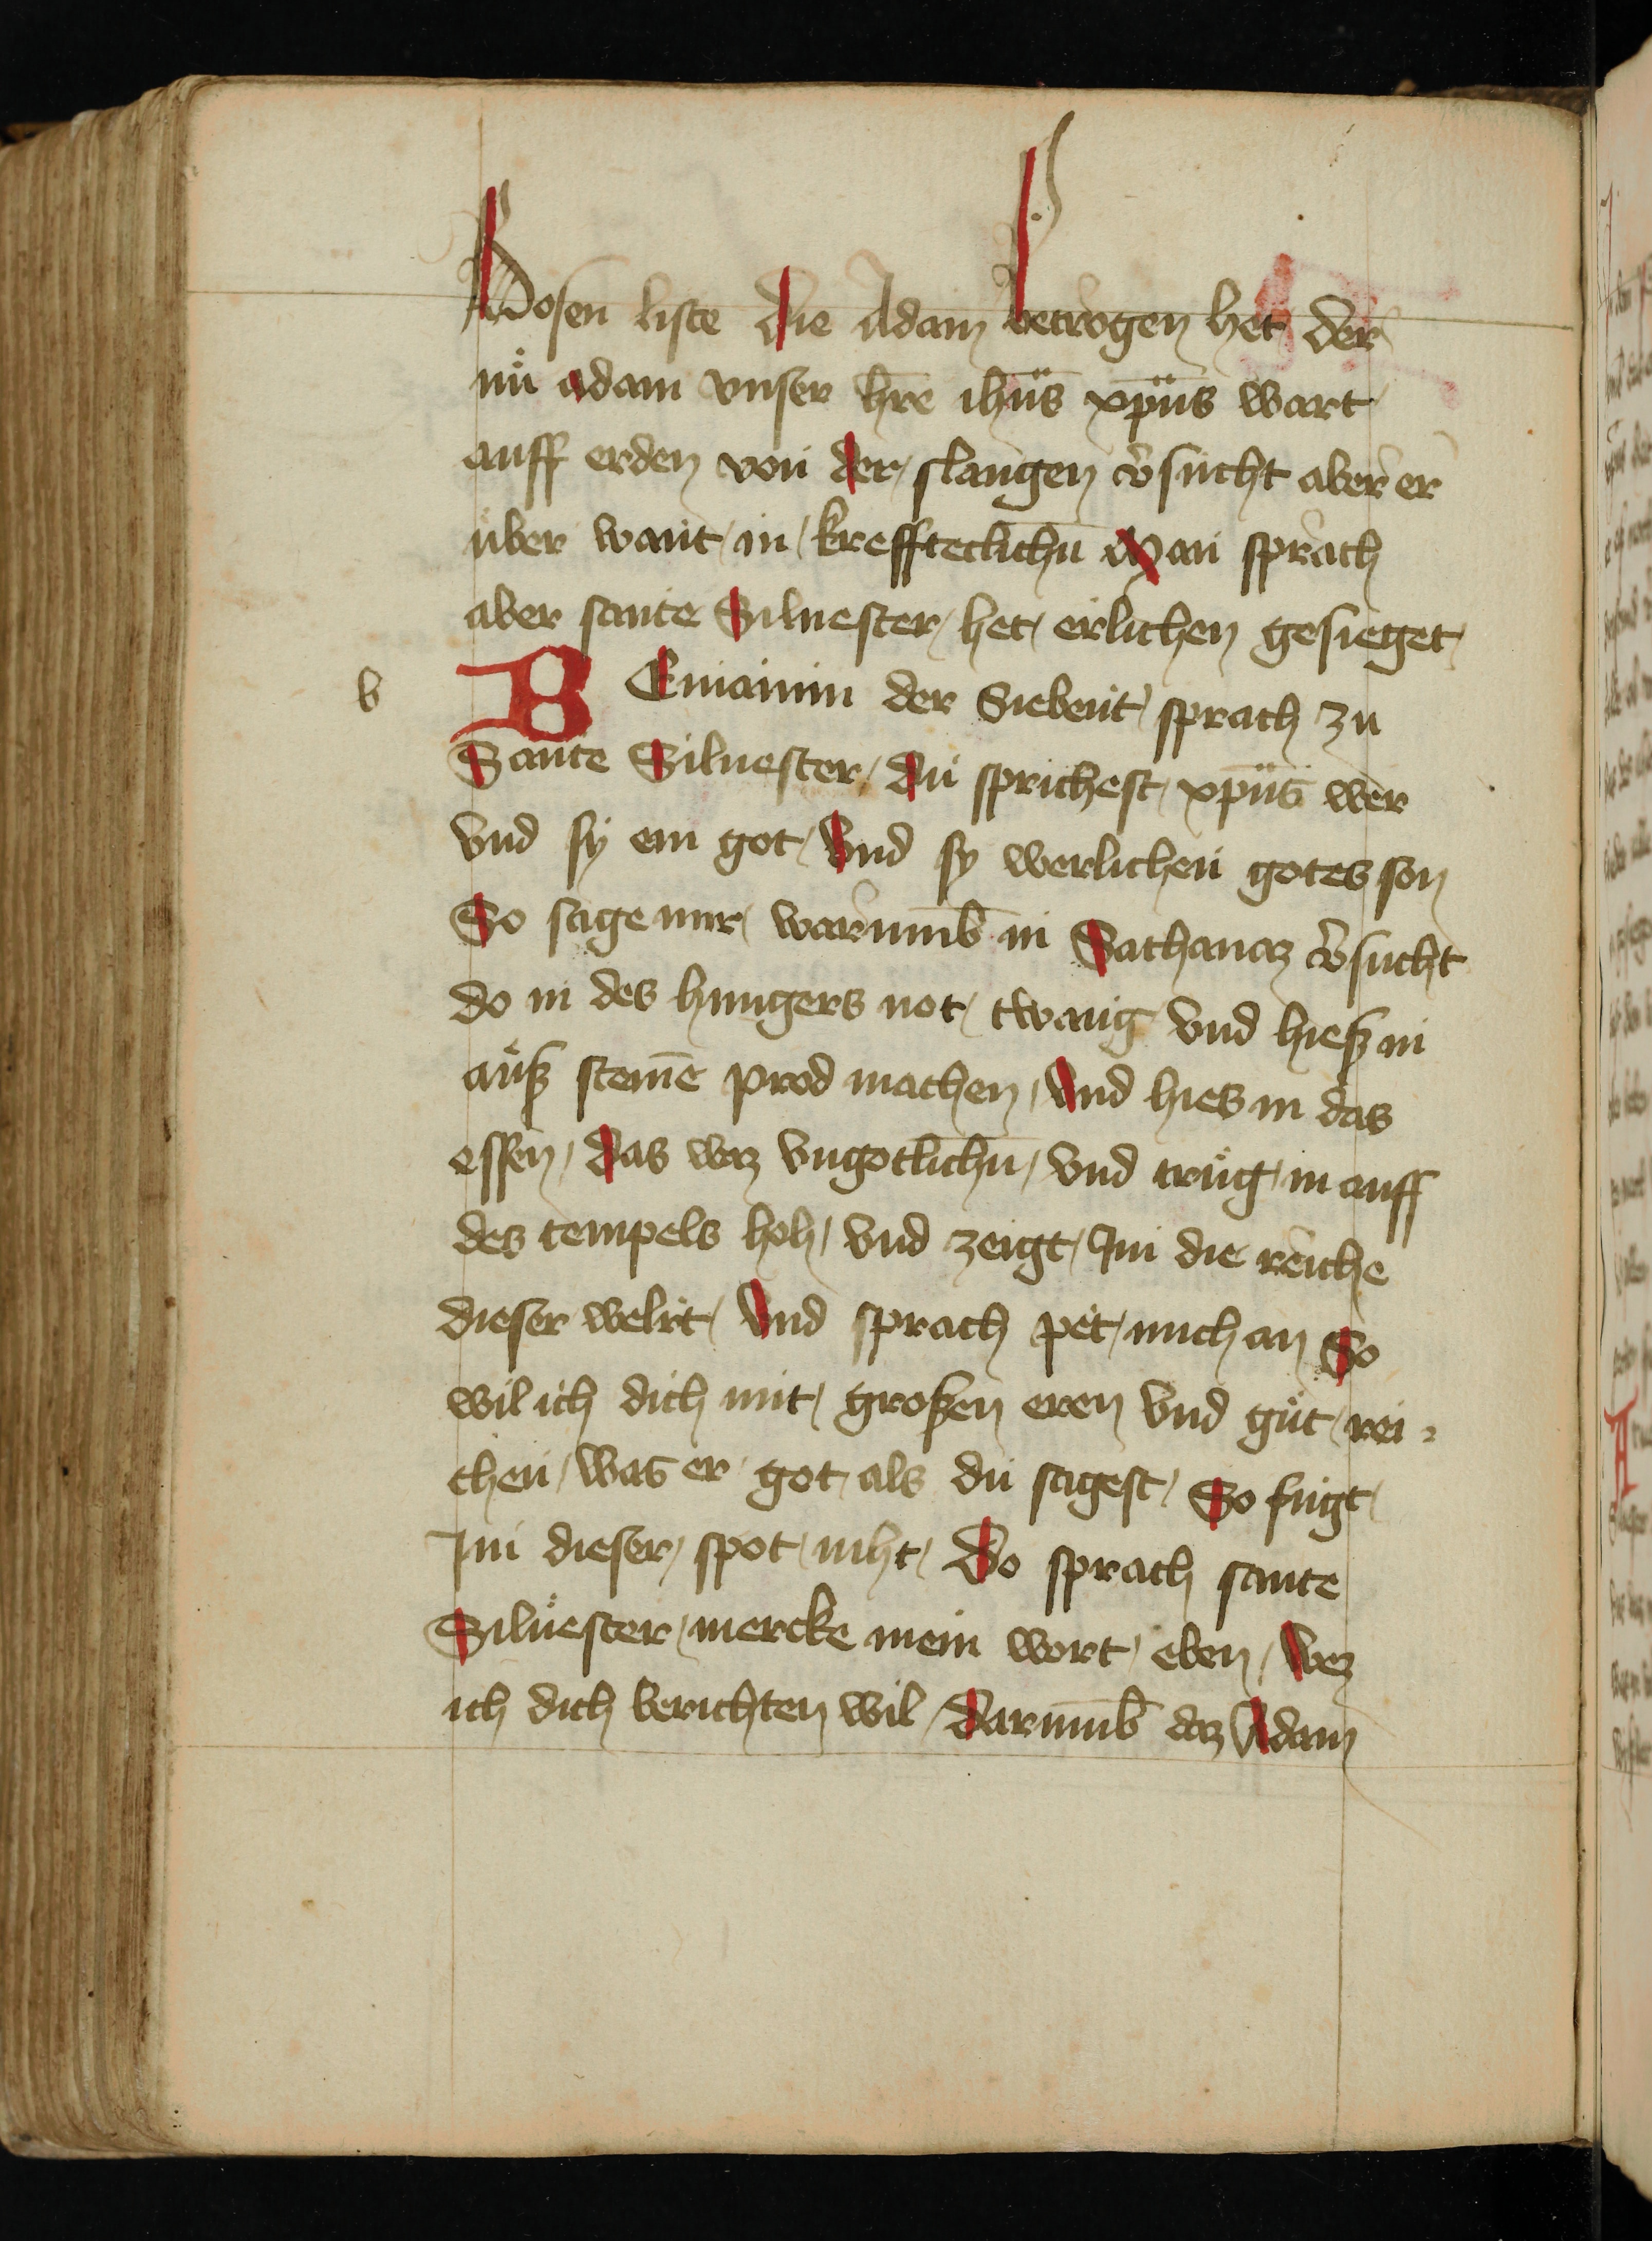 Bosen liste die Adam betrogen het der
nů adam vnser hr̄e ih̄us xp̄us wart
auff erden von der slangen v̄sucht aber er
über want in krefftecliche͞n Man sprach
aber sante Siluester het erlichen gesieget
b BEniamin der Siebent sprach zu
Sante Siluester du sprichest xp̄us wer
vnd sy ein got Vnd sy werlichen gotes son
So sage mir warumb̄ in Sathanaz v̄sucht
do in des hungers not twang vnd hieß in
auß stein̄e prod machen Vnd hies in das
essen das waz vngotliche͞n vnd trůg in auff
des tempels hoh vnd zeigt Im die reiche
dieser welrt Vnd sprach pet mich an So
wil ich dich mit großen eren vnd gůt rei⸗
chen was er got als du sagest So fugt
Im dieser spot niht Do sprach sante
Siluester mercke mein wort eben wez
ich dich berichten wil Darumb̄ daz Adam